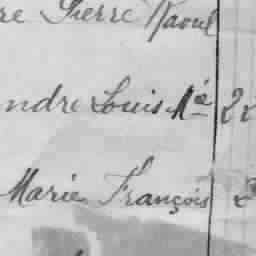 re Pierre Raoul
ndre Louis Mé 2
Marie François